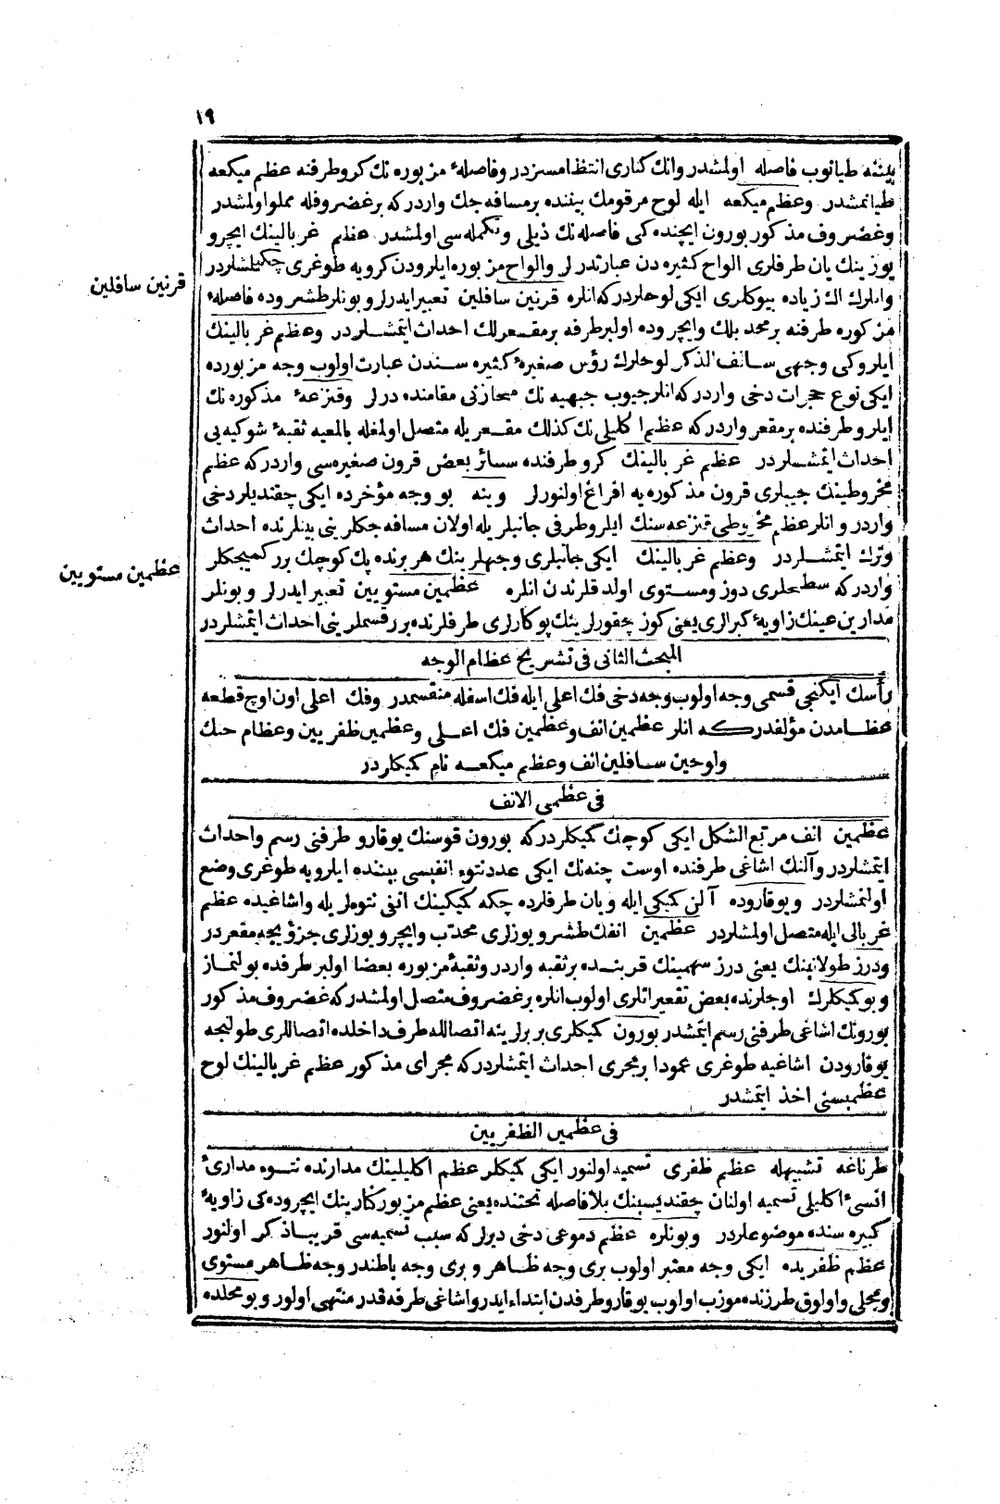 ١٩
بيننه طيانوب فاصله اولمشدر وانك كنارى انتظامسزدر وفاصلۀ مزبوره نك كروطرفنه عظم ميكعه
طيانمشدر وعظم ميكعه ايله لوح مرقومك بيننده برمسافه جك واردركه برغضروفله مملو اولمشدر
وغضروف مذكور بورون ايچنده كى فاصله نك ذيلى وتكمله سى اولمشدر عظم غربالينك ايچرو
يوزينك يان طرفلرى الواح كثيره دن عبارتدرلر والواح مزبوره ايلرودن كرويه طوغرى چكيلشلردر
وانلرك الك زياده بيوكلرى ايكى لوحلردركه انلره قرنين سافلين تعبير ايدرلر وبونلر طشروده فاصلۀ
قرنين سافلين
مزكوره طرفنه برمحدبلك وايچروده اولبرطرفه برمقعرلك احداث ايتمشلردر وعظم غربالينك
ايلروكى وجهى سانف الذكر لوحلرك رؤس صغيرۀ كثيره سندن عبارت اولوب وجه مزبورده
ايكى نوع حجرات دخى واردركه انلرجيوب جبهيه نك مخازنى مقامنده درلر وقنزعۀ مذكوره نك
ايلرو طرفنده برمقعر واردركه عظم اكليلى نك كذلك مقعريله متصل اولمغله بالمعيه ثقبۀ شوكيه يى
احداث ايتمشلردر عظم غربالينك كرو طرفنده سائر بعض قرون صغيره سى واردركه عظم
مخروطينك جيبلرى قرون مذكوره يه افراغ اولنورلر وينه بو وجه مؤخرده ايكى چقنديلر دخى
واردر وانلر عظم مخروطى قنزعه سنك ايلروطرفى جانبلريله اولان مسافه جكلرينى بينلرنده احداث
وترك ايتمشلردر وعظم غربالينك ايكى جانبلرى وجهلرينك هربرنده پك كوچك برر كميجكلر
واردركه سطحلرى دوز ومستوى اولدقلرندن انلره عظمين مستويين تعبير ايدرلر وبونلر
عظمين مستويين
مدارين عينك زاويۀ كبرالرى يعنى كوز چقورلرينك پوكارلرى طرفلرنده برر قسملرينى احداث ايتمشلردر
المبحث الثانى فى تشريح عظام الوجه
رأسك ايكنجى قسمى وجه اولوب وجه دخى فك اعلى ايله فك اسفله منقسمدر وفك اعلى اون اوچ قطعه
عظامدن مؤلفدركه انلر عظمين انف وعظمين فك اعلى وعظمين ظفريين وعظام حنك
ولوحين سافلين انف وعظم ميكعه نام كميكلردر
فى عظمى الانف
عظمين انف مربع الشكل ايكى كوچك كميكلردركه بورون قوسنك يوقارو طرفنى رسم واحداث
ايتمشلردر وآلنك اشاغى طرفنده اوست چنه نك ايكى عدد نتوء انفيسى بيننده ايلرويه طوغرى وضع
اولنمشلردر ويوقاروده آلن كميكى ايله ويان طرفلرده چكه كميكينك انفى نتوءلريله واشاغيده عظم
غربالى ايله متصل اولمشلردر عظمين انفك طشرو يوزلرى محدب وايچرو يوزلرى جزؤيجه مقعردر
ودرز طولانينك يعنى درز سهمينك قربنده برثقبه واردر وثقبۀ مزبوره بعضا اولبر طرفده بولنماز
وبوكميكلرك اوجلرنده بعض تقعيراتلرى اولوب انلره برغضروف متصل اولمشدركه غضروف مذكور
بورونك اشاغى طرفنى رسم ايتمشدر بورون كميكلرى بربرلرينه اتصالله طرف داخلده اتصاللرى طولنجه
يوقارودن اشاغيه طوغرى عمودا برمجرى احداث ايتمشلردركه مجراى مذكور عظم غربالينك لوح
عظميسنى اخذ ايتمشدر
فى عظمين الظفريين
طرناغه تشبيهله عظم ظفرى تسميه اولنور ايكى كميكلر عظم اكليلينك مدارنده نتوء مدارئ
انسئ اكليلى تسميه اولنان چقنديسينك بلافاصله تحتنده يعنى عظم مزبور كنارينك ايچروده كى زاويۀ
كبيره سنده موضوعلردر وبونلره عظم دموعى دخى ديرلركه سبب تسميه سى قريبا ذكر اولنور
عظم ظفريده ايكى وجه معتبر اولوب برى وجه ظاهر وبرى وجه باطندر وجه ظاهر مستوى
ومجلى واولوق طرزنده موزب اولوب يوقارو طرفدن ابتداء ايدر واشاغى طرفه قدر منتهى اولور وبومحلده